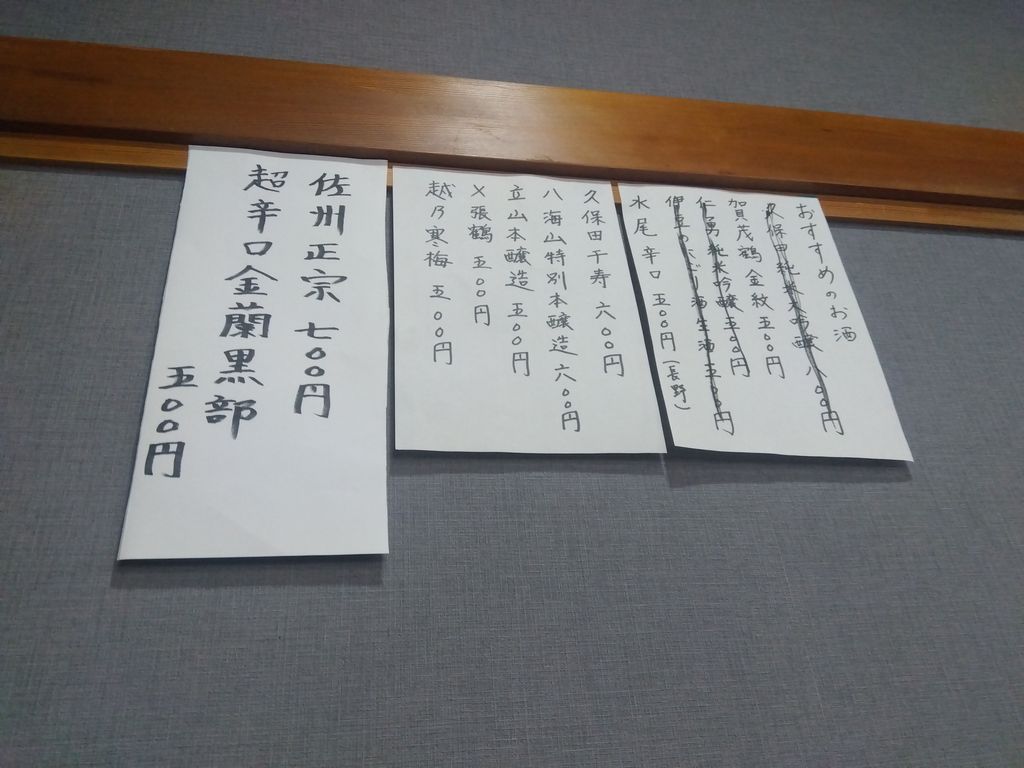 おすすめのお酒
久保田純米大吟醸 八〇〇円
賀茂鶴金紋 五〇〇円
仁勇純米吟醸 五〇〇円
伊豆のにごり酒 生酒 五〇〇円
水尾 辛口 五〇〇円 (長野)
久保田千寿 六〇〇円
八海山特別本醸造 六〇〇円
立山本醸造 五〇〇円
〆張鶴 五〇〇円
越乃寒梅 五〇〇円
佐州正宗 七〇〇円
超辛口金蘭黒部
五〇〇円